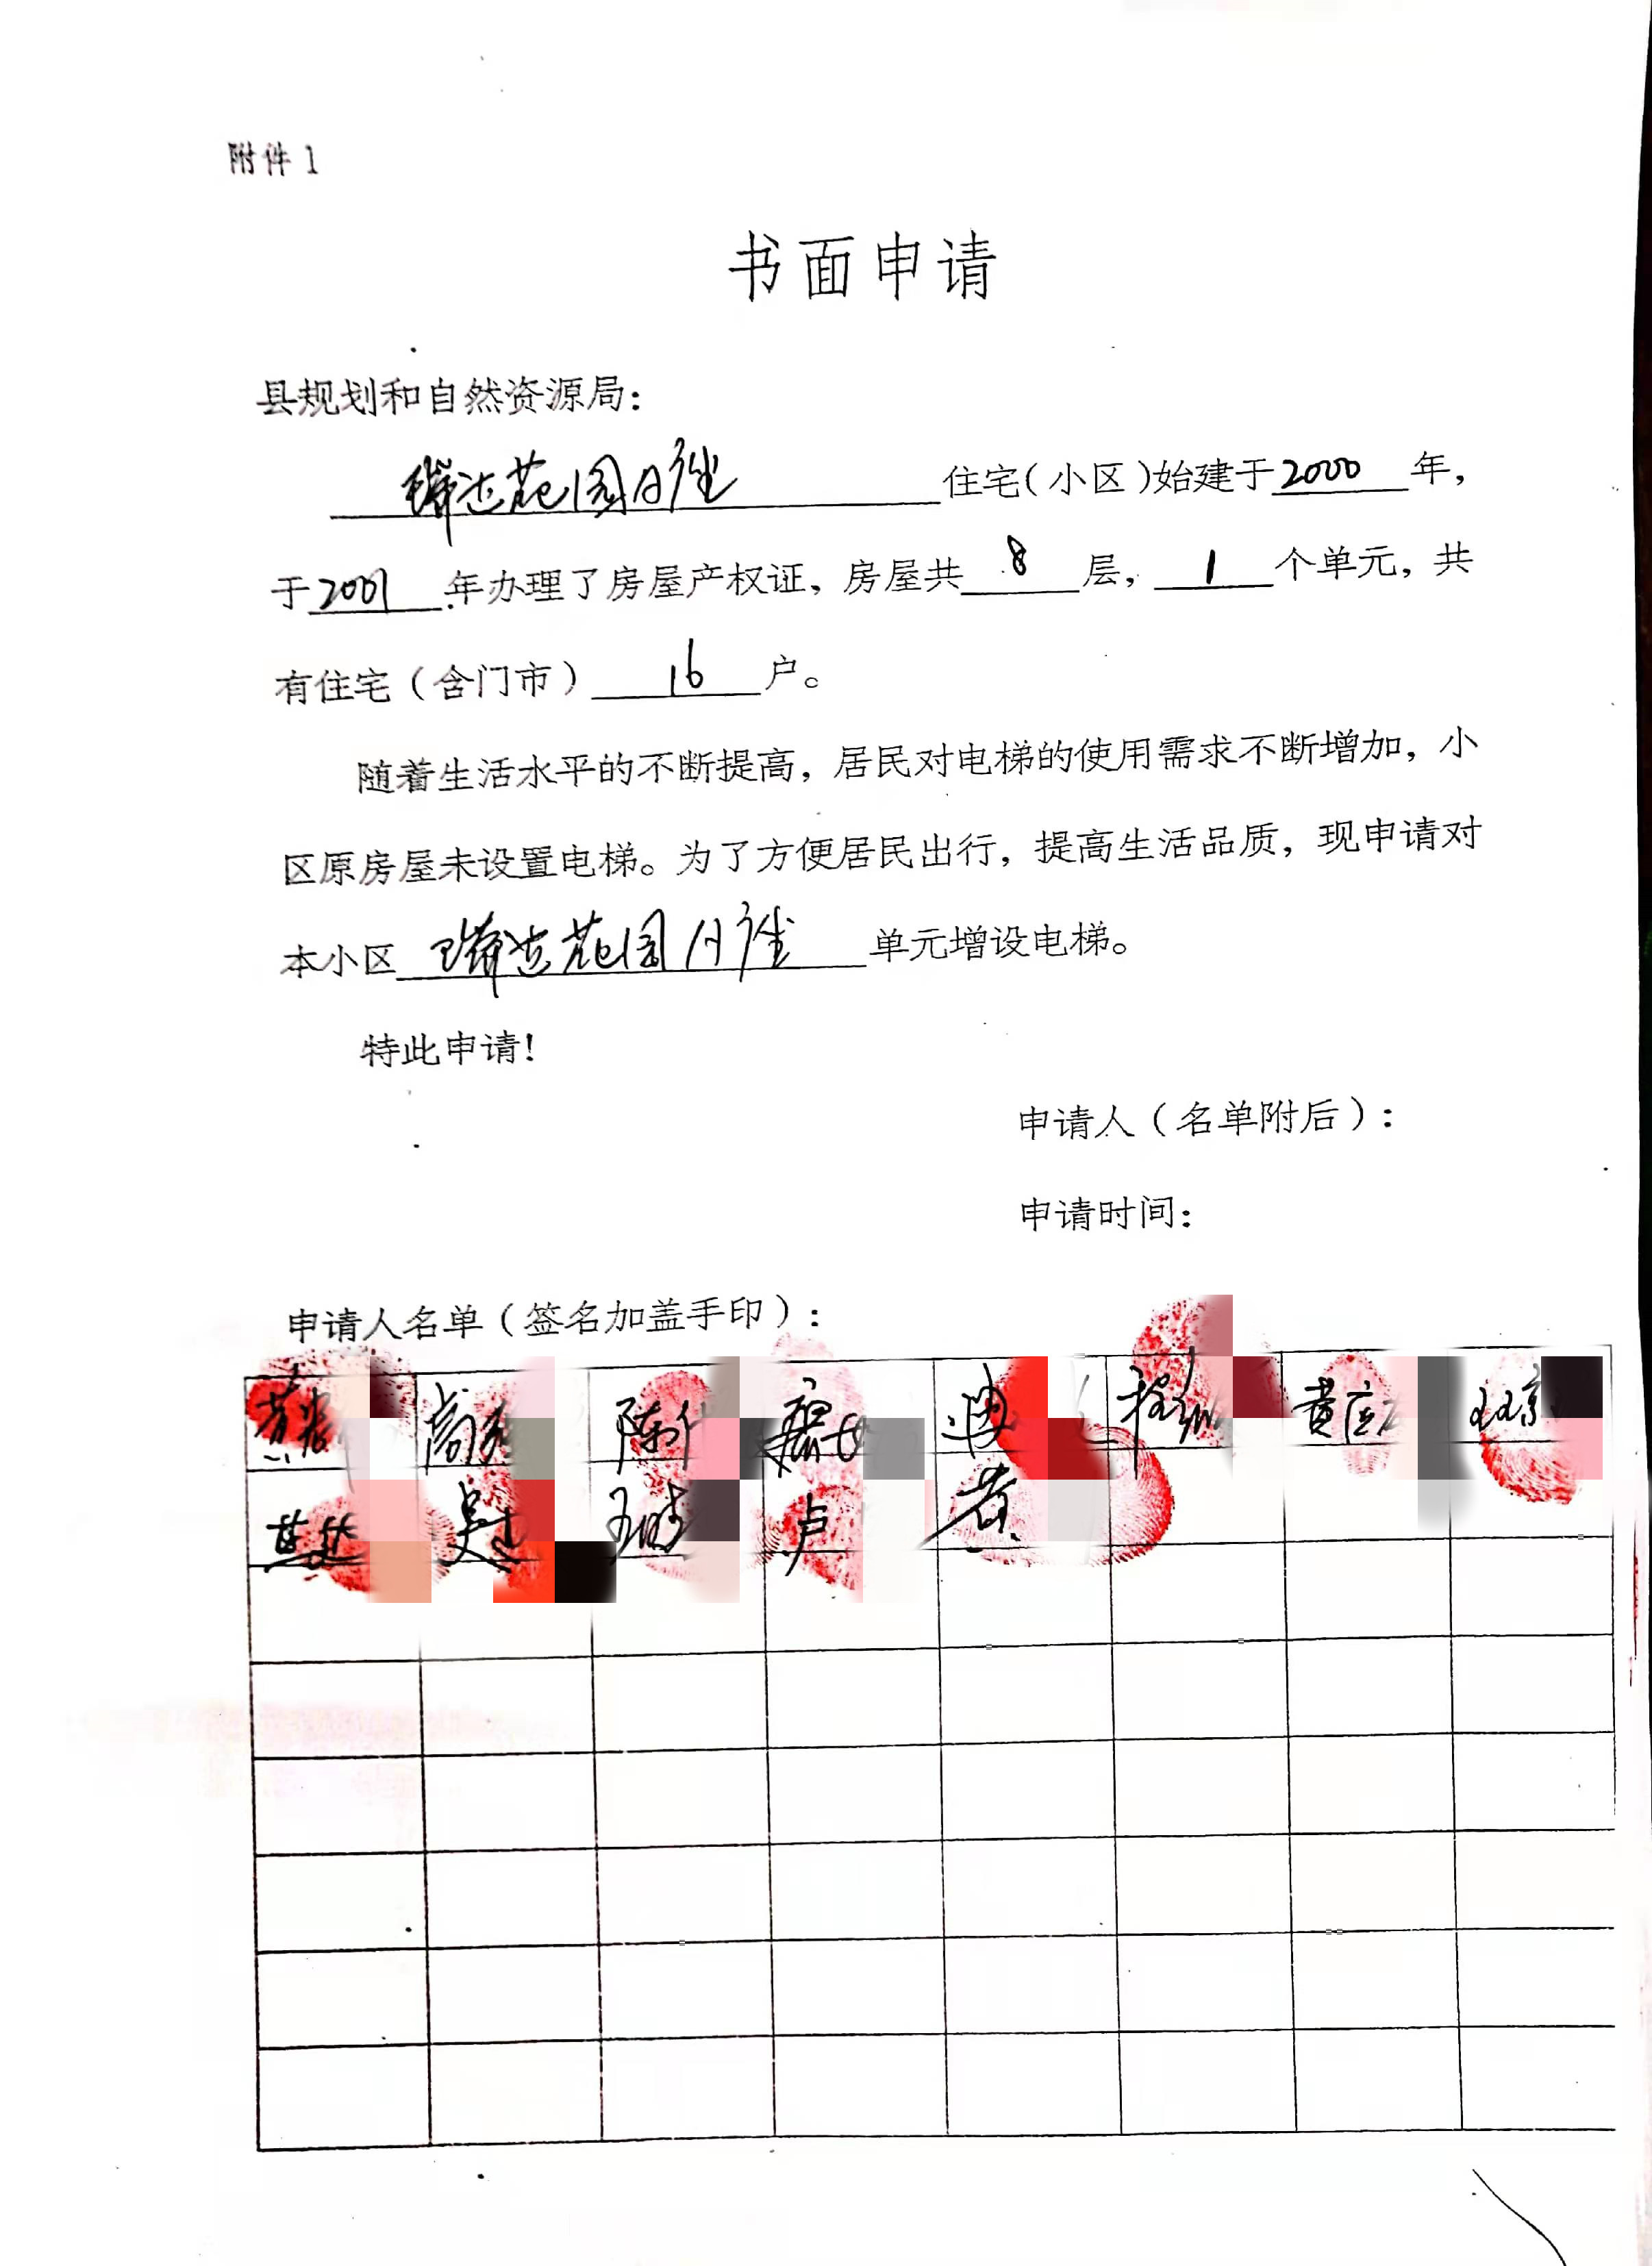 附件1
书面申请
县规划和自然资源局：
瑞达花园A座住宅（小区）始建于2000年，
于2001年办理了房屋产权证，房屋共8层，1个单元，共
有住宅（含门市）16户。
随着生活水平的不断提高，居民对电梯的使用需求不断增加，小
区原房屋未设置电梯。为了方便居民出行，提高生活品质，现申请对
本小区瑞达花园A座单元增设电梯。
特此申请！
申请人（名单附后）：
申请时间：
申请人名单（签名加盖手印）：
高 陈 程 黄应
吴 卢 黄